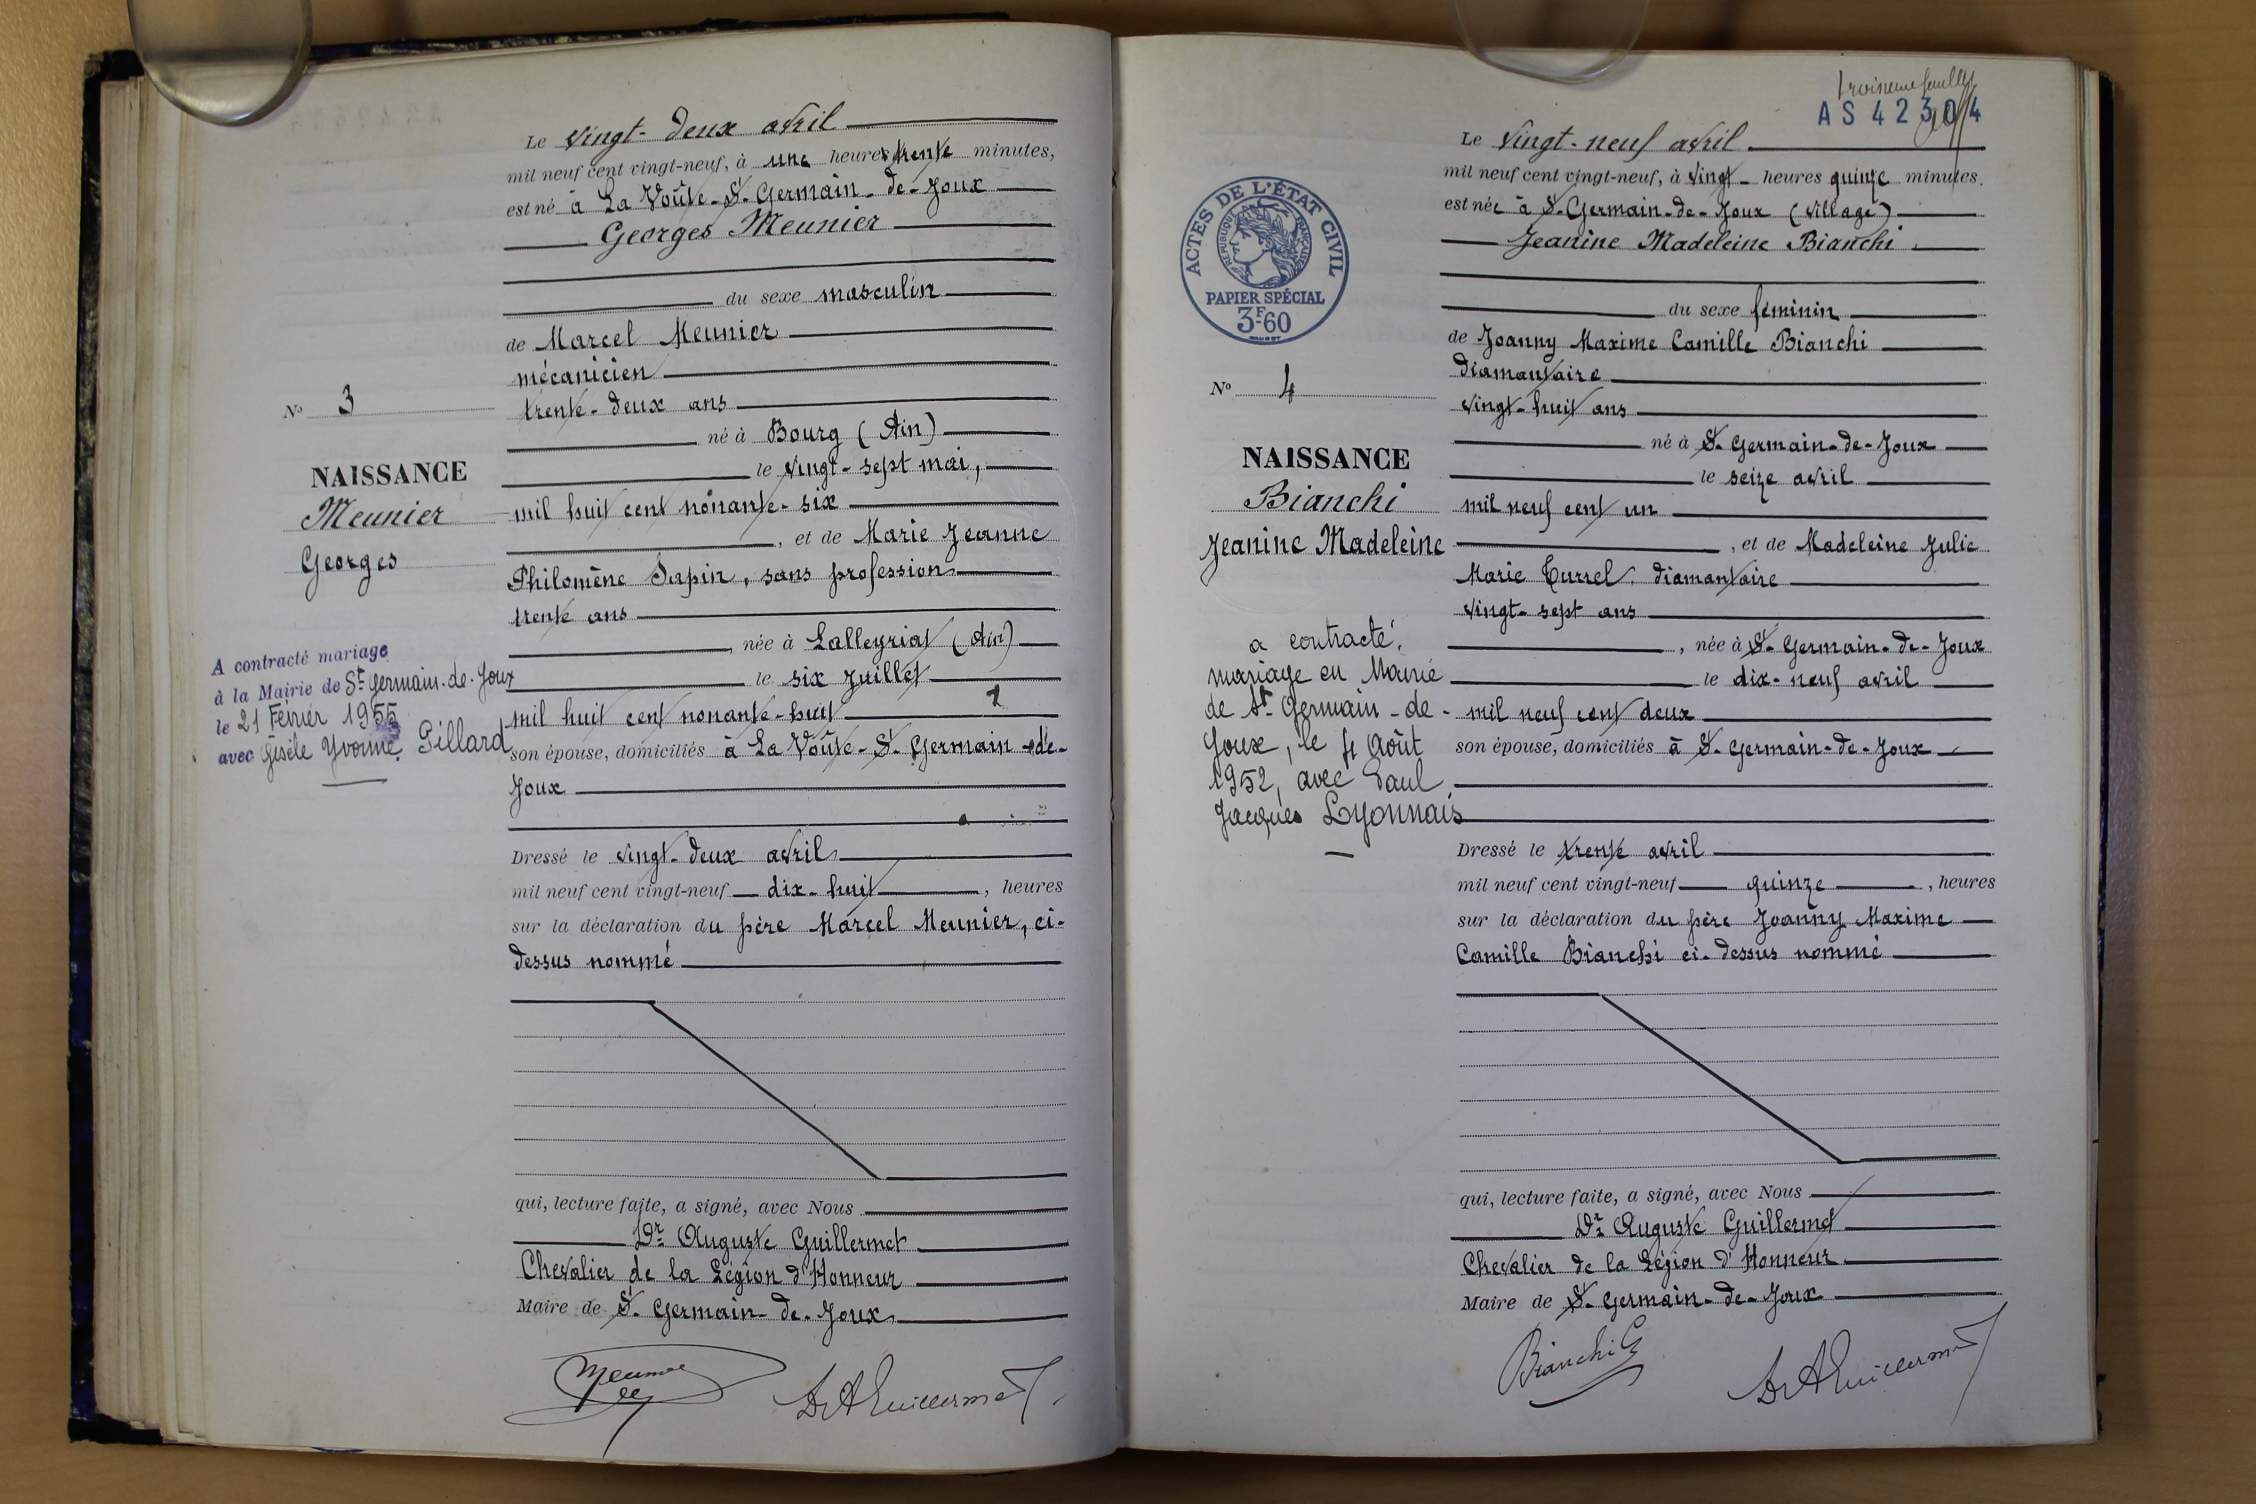 Le vingt-deux avril
mil neuf cent vingt-neuf, à une heures trente minutes,
est né à La Voûte-St-Germain-de-Joux
Georges Meunier
du sexe masculin
de Marcel Meunier
mécanicien
trente-deux ans
né à Bourg (Ain)
le vingt-sept mai,
mil huit cent nonante-six
, et de Marie Jeanne
Philomène Sapin, sans profession
trente ans
, née à Lalleyriat (Ain)
le six Juillet
mil huit cent nonante-huit
son épouse, domiciliés à La Voûte-St-Germain-de-
Joux
Dressé le vingt-deux avril
mil neuf cent vingt-neuf dix-huit, heures
sur la déclaration du père Marcel Meunier, ci-
dessus nommé
qui, lecture faite, a signé, avec Nous
Dr Auguste Guillermet
Chevalier de la Légion d'Honneur
Maire de St-Germain-de-Joux
Meunier
Dr A Guillermet
No 3
NAISSANCE
Meunier
Georges
A contracté mariage
à la Mairie de St Germain-de-Joux
le 21 Février 1955
avec Gisèle Yvonne Pillard
troisième feuillet
AS 42304
Le vingt-neuf avril
mil neuf cent vingt-neuf, à vingt heures quinze minutes.
est née à St-Germain-de-Joux (village)
Jeanine Madeleine Bianchi
du sexe féminin
de Joanny Maxime Camille Bianchi
diamantaire
vingt-huit ans
né à St-Germain-de-Joux
le seize avril
mil neuf cent un
, et de Madeleine Julie
Marie Turrel, diamantaire
vingt-sept ans
, née à St-Germain-de-Joux
le dix-neuf avril
mil neuf cent deux
son épouse, domiciliés à St-Germain-de-Joux
Dressé le trente avril
mil neuf cent vingt-neuf quinze, heures
sur la déclaration du père Joanny Maxime
Camille Bianchi ci-dessus nommé
qui, lecture faite, a signé, avec Nous
Dr Auguste Guillermet
Chevalier de la Légion d'Honneur
Maire de St-Germain-de-Joux
Bianchi
Dr A Guillermet
ACTES DE L'ÉTAT CIVIL
REPUBLIQUE FRANÇAISE
PAPIER SPÉCIAL
3F60
No 4
NAISSANCE
Bianchi
Jeanine Madeleine
a contracté
mariage en Mairie
de St Germain-de-
Joux, le 4 Août
1952, avec Paul
Jacques Lyonnais